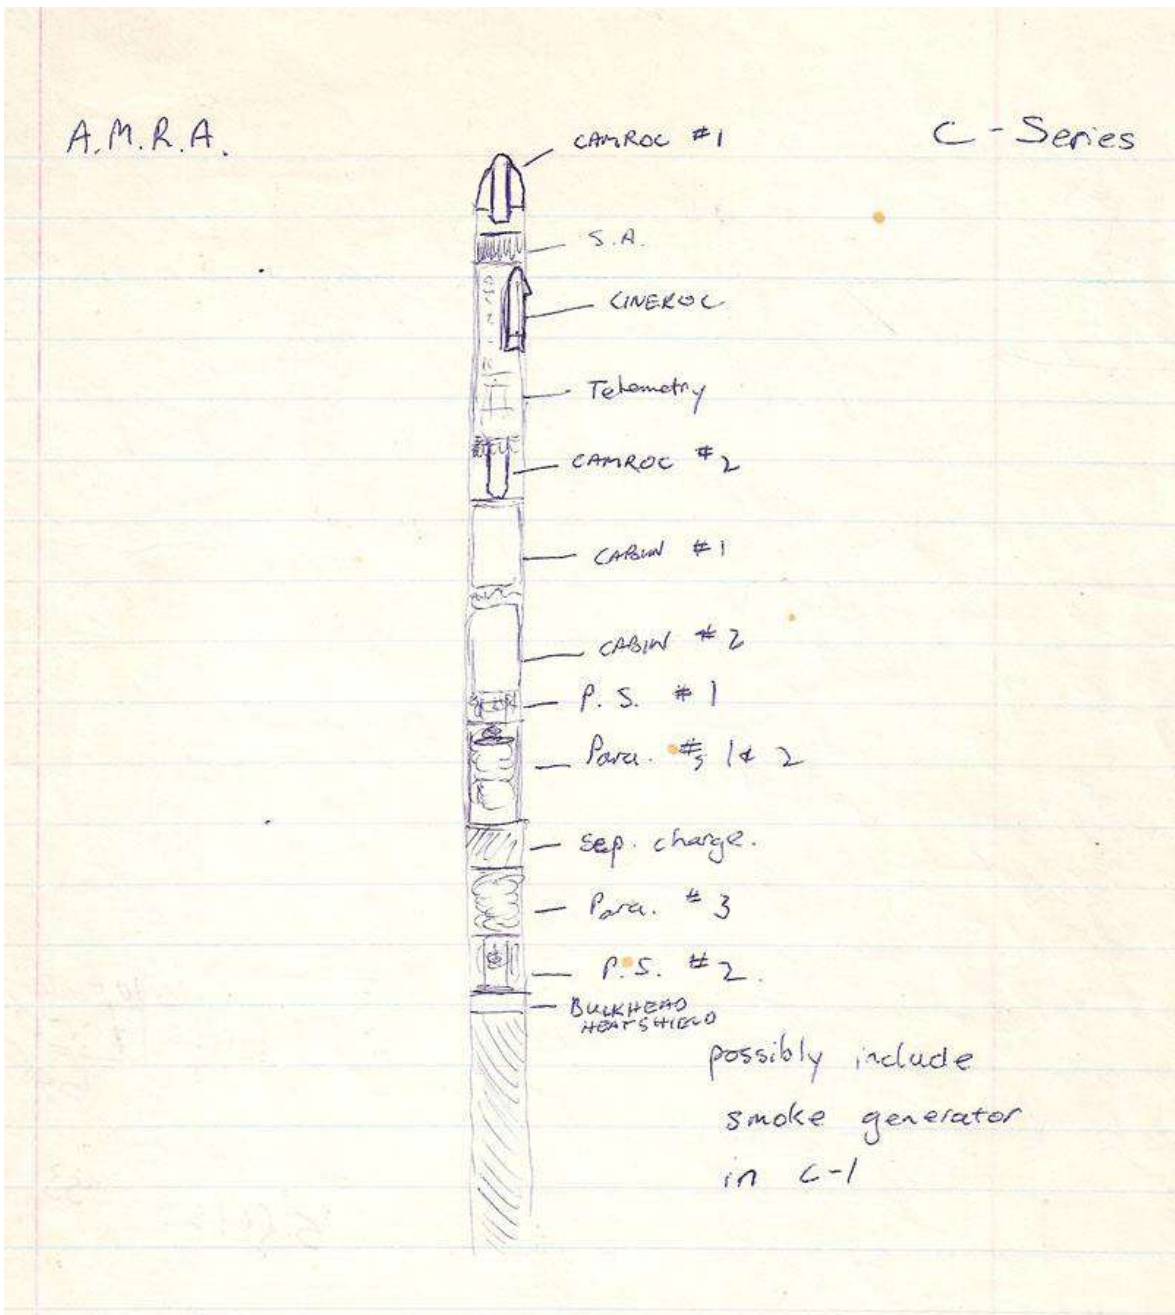 A.M.R.A.
C-Series
CAMROC #1
S.A.
CINEROC
Telemetry
CAMROC #2
CABIN #1
CABIN #2
P.S. #1
Para. #s 1 & 2
Sep. charge.
Para. #3
P.S. #2.
BULKHEAD
HEATSHIELD
possibly include
smoke generator
in C-1